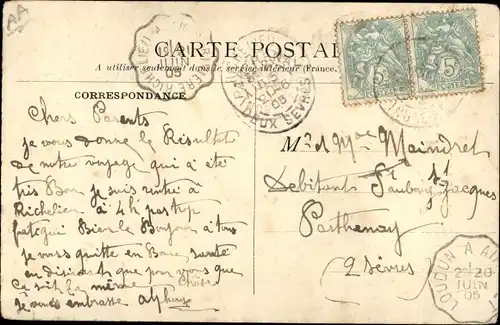 CARTE POSTALE
A utiliser seulement dans le service intérieur (France,
CORRESPONDANCE
Chers Parents
je vous donne le Résultat
de notre voyage qui a été
très Bon je suis rentré a
Richelieu à 4 h pas trop
fatigué Bien le Bonjour a tous
je vous quitte en Bonne santé
en désirant que pour vous
ça soit la même chose
je vous embrasse Alphonse
Mr et Mme Maindret
Débitants Faubourg St Jacques
Parthenay
2 Sèvres
JUIN
05
DEUX SEVRES
05
5c
5c
LOUDUN A AIR
2° 20
JUIN
05